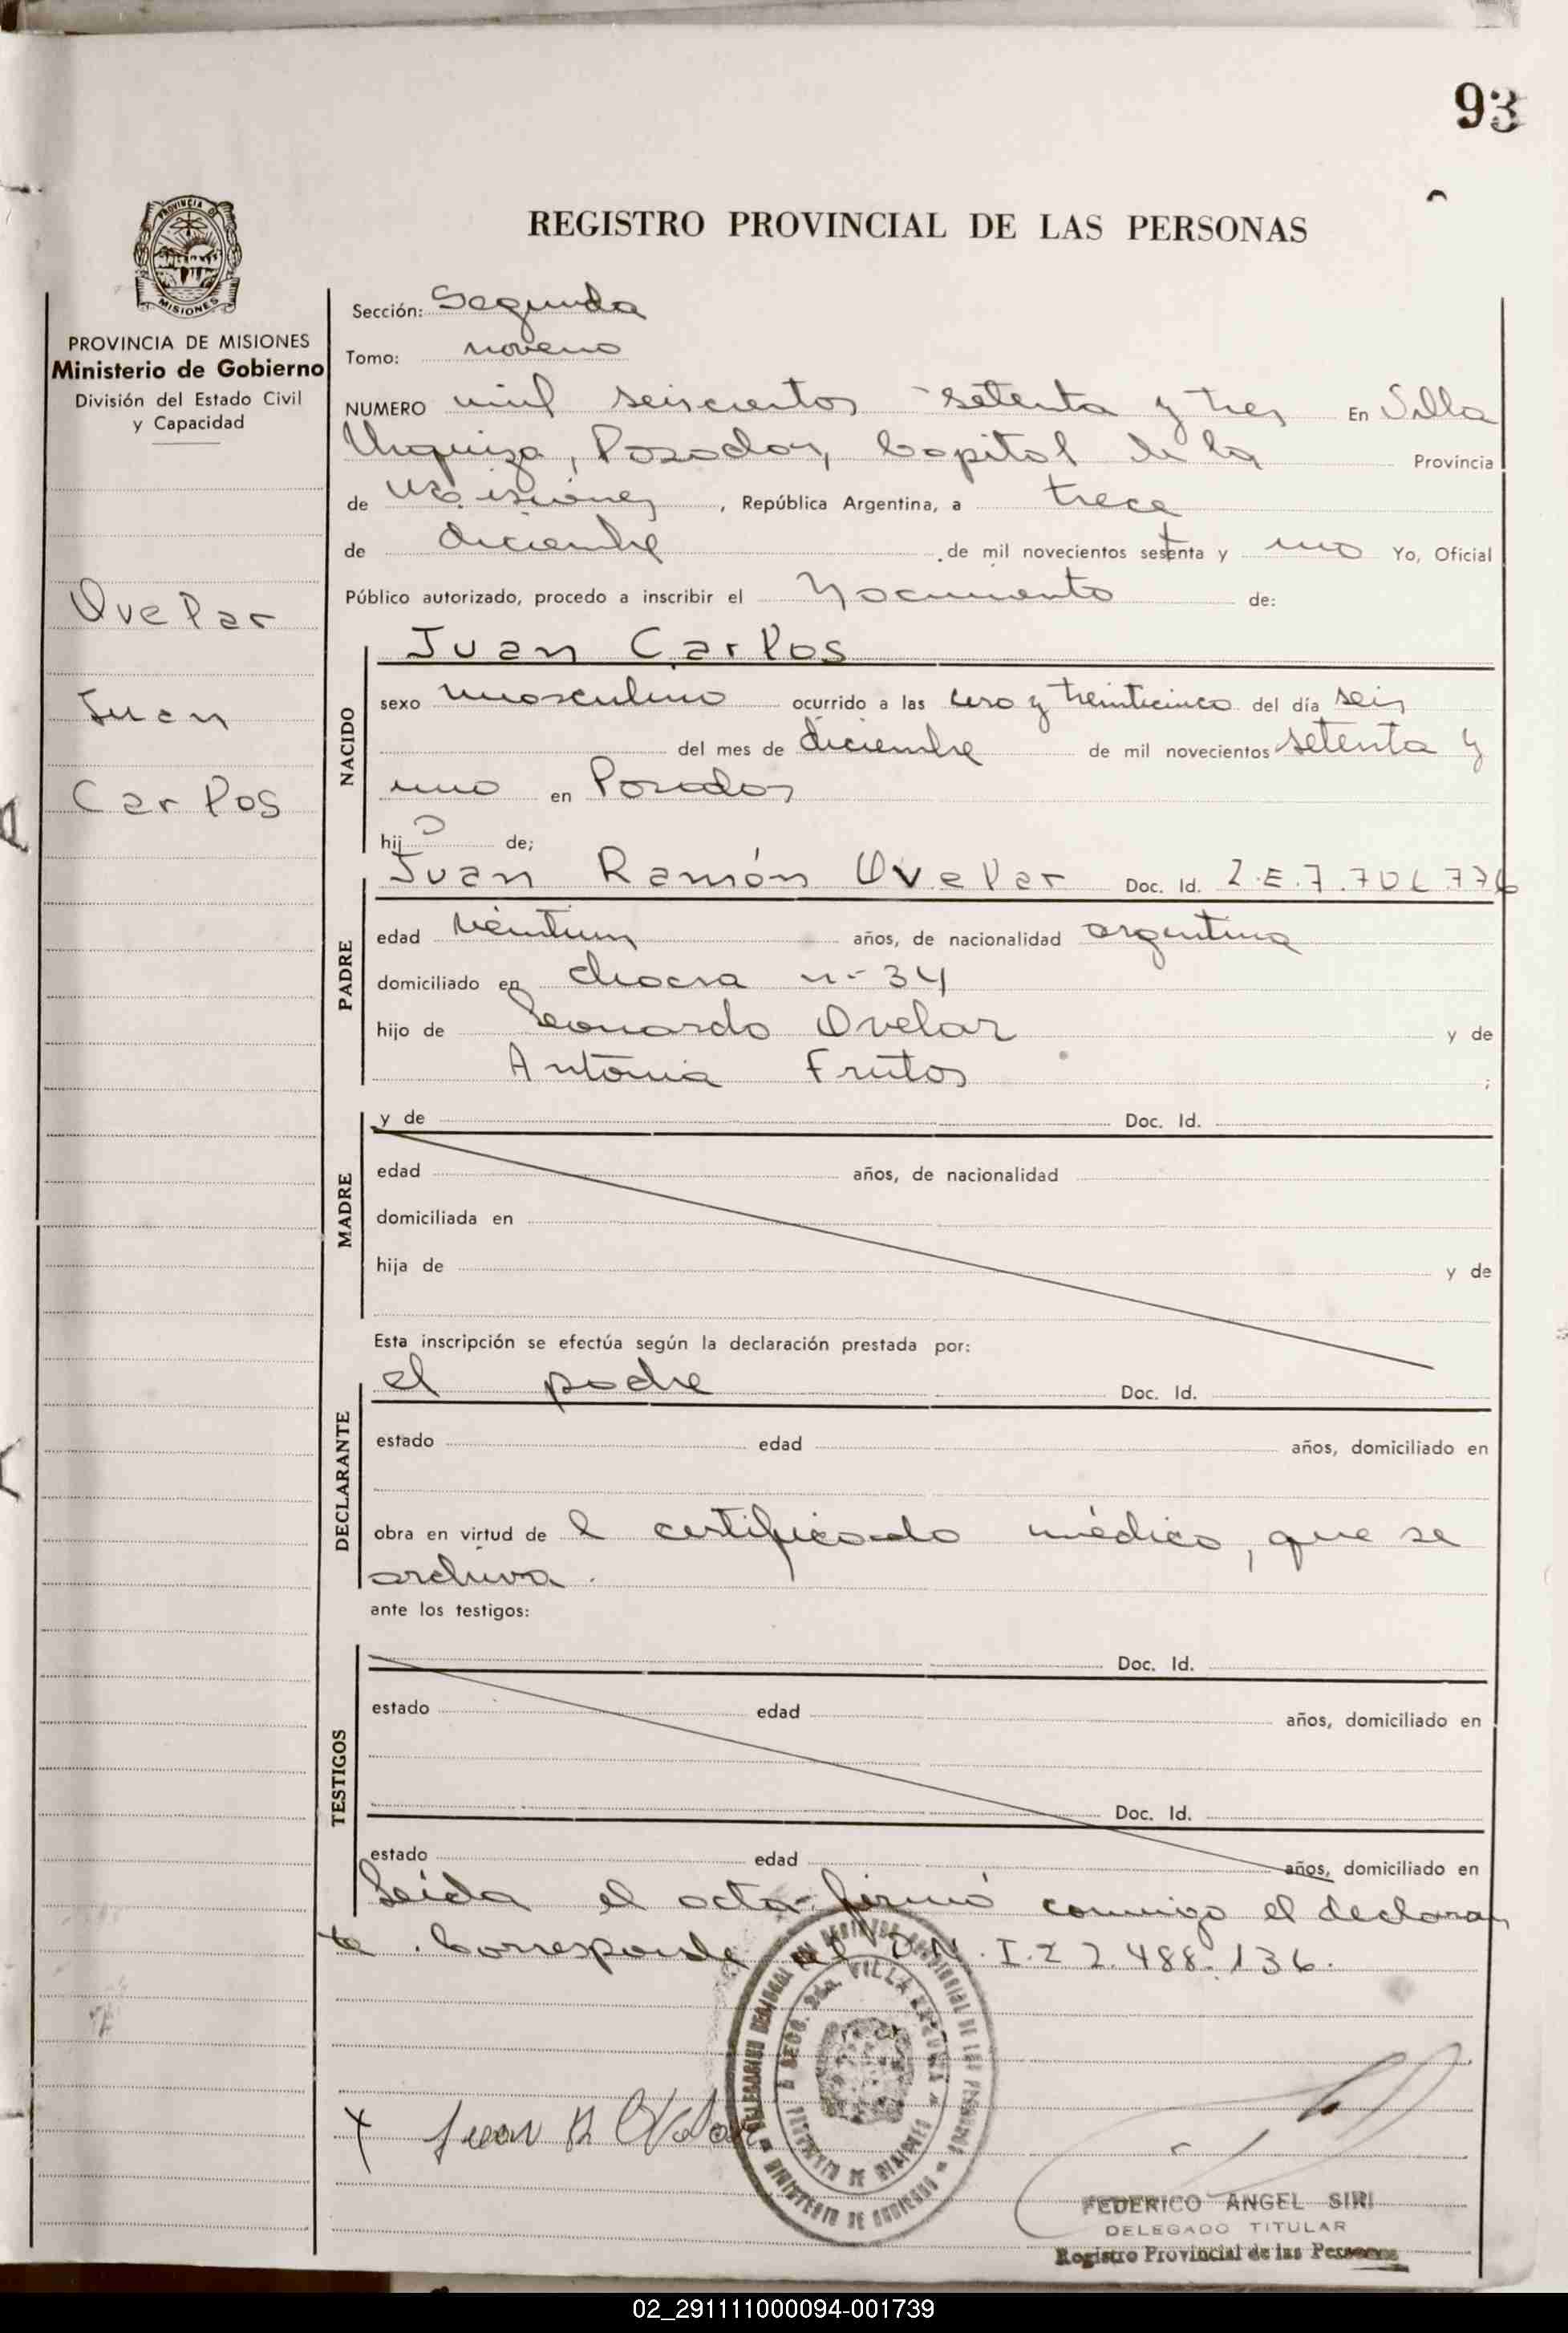 93
PROVINCIA DE
MISIONES
REGISTRO PROVINCIAL DE LAS PERSONAS
PROVINCIA DE MISIONES
Ministerio de Gobierno
División del Estado Civil
y Capacidad
Ovelar
Juan
Carlos
Sección: Segunda
Tomo: noveno
NUMERO mil seiscientos setenta y tres En Villa
Urquiza, Posadas, Capital de la Provincia
de Misiones, República Argentina, a trece
de diciembre de mil novecientos setenta y uno Yo, Oficial
Público autorizado, procedo a inscribir el Nacimiento de:
NACIDO
Juan Carlos
sexo masculino ocurrido a las cero y treinticinco del día seis
del mes de diciembre de mil novecientos setenta y
uno en Posadas
hijo de;
PADRE
Juan Ramón Ovelar Doc. Id. L.E.7.706.776
edad veintiun años, de nacionalidad argentina
domiciliado en chacra n- 34
hijo de Leonardo Ovelar y de
Antonia Frutos ;
MADRE
y de Doc. Id.
edad años, de nacionalidad
domiciliada en
hija de y de
Esta inscripción se efectúa según la declaración prestada por:
DECLARANTE
el padre Doc. Id.
estado edad años, domiciliado en
obra en virtud de l certificado médico, que se
archiva.
ante los testigos:
TESTIGOS
Doc. Id.
estado edad años, domiciliado en
Doc. Id.
estado edad años, domiciliado en
Leída el acta firmó conmigo el declaran
te. Corresponde al D.N.I. 22.488.136.
x Juan R Ovelar
SECC. 2da. VILLA URQUIZA
MINISTERIO DE GOBIERNO
FEDERICO ANGEL SIRI
DELEGADO TITULAR
Registro Provincial de las Personas
02_291111000094-001739